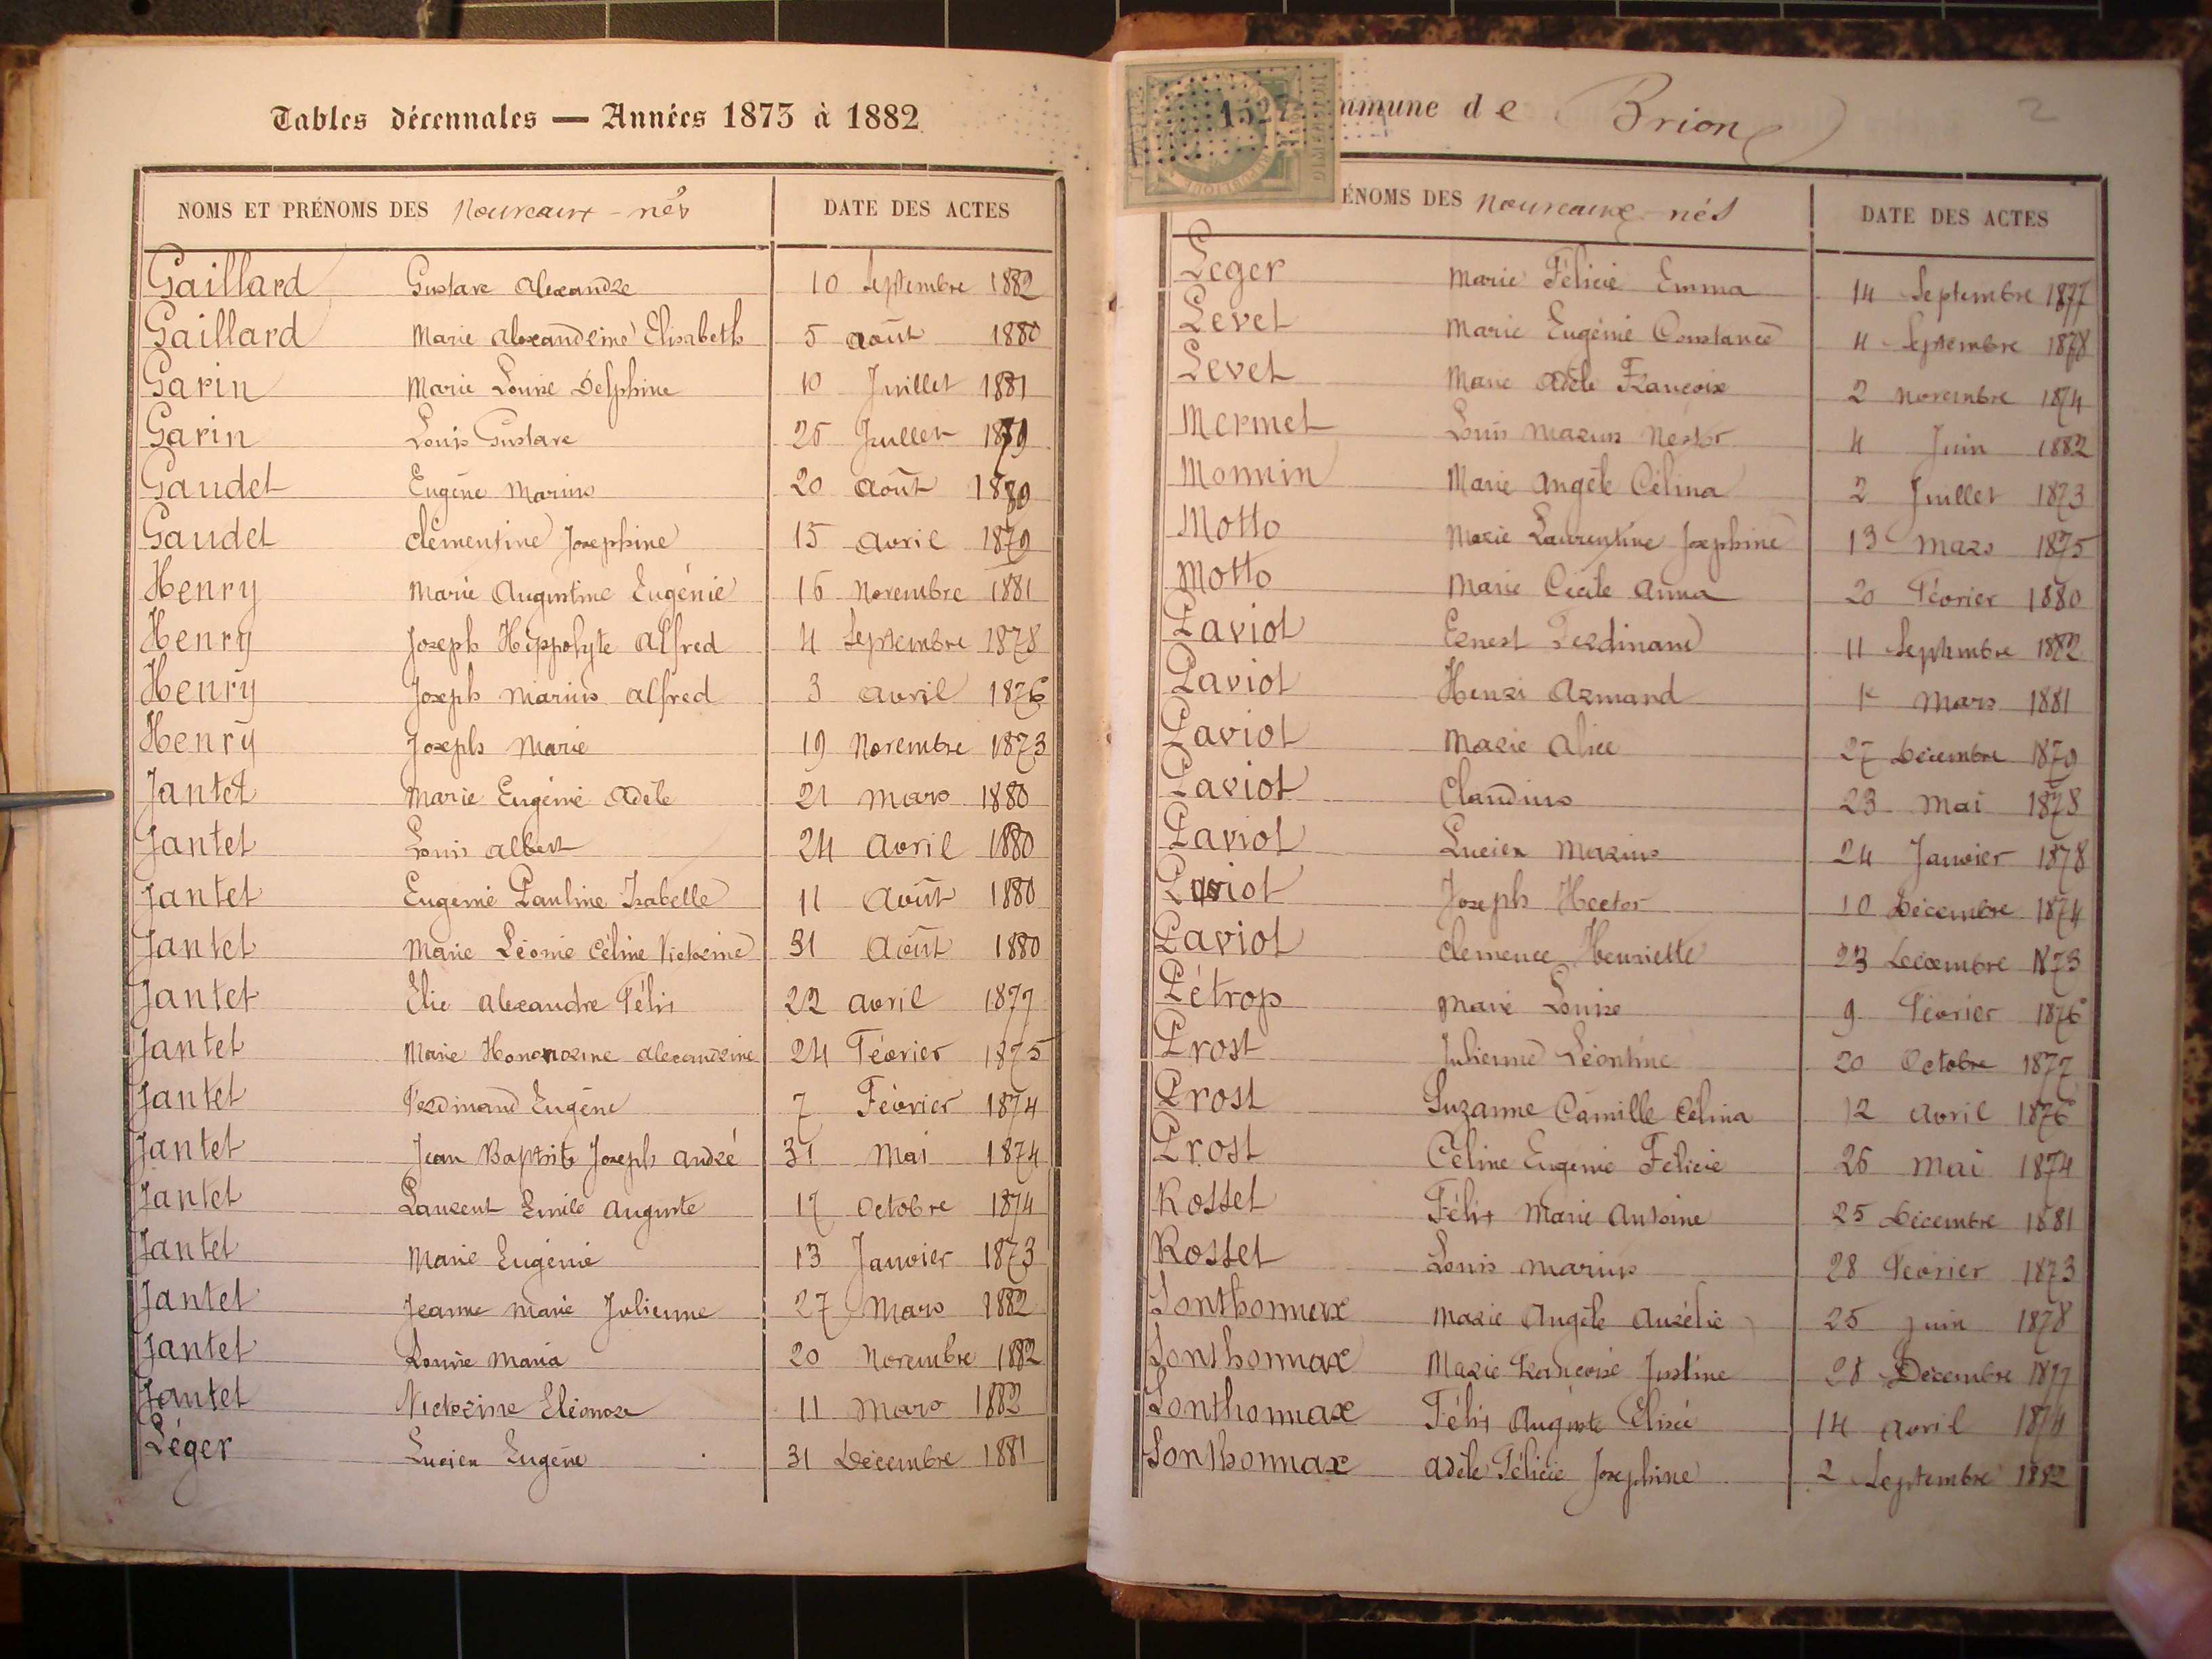 Tables décennales — Années 1873 à 1882
NOMS ET PRÉNOMS DES Nouveaux-nés DATE DES ACTES
Gaillard Gustave Alexandre 10 Septembre 1882
Gaillard Marie Alexandrine Elisabeth 5 Août 1880
Garin Marie Louise Delphine 10 Juillet 1881
Garin Louis Gustave 25 Juillet 1879
Gaudet Eugène Marius 20 Août 1880
Gaudet Clémentine Josephine 15 Avril 1879
Henry Marie Augustine Eugénie 16 Novembre 1881
Henry Joseph Hippolyte Alfred 4 Septembre 1878
Henry Joseph Marius Alfred 3 Avril 1876
Henry Joseph Marie 19 Novembre 1873
Jantet Marie Eugénie Adèle 21 Mars 1880
Jantet Louis Albert 24 Avril 1880
Jantet Eugenie Pauline Isabelle 11 Août 1880
Jantet Marie Léonie Céline Victorine 31 Août 1880
Jantet Elie Alexandre Félix 22 Avril 1877
Jantet Marie Alexandrine 24 Février 1875
Jantet Ferdinand Eugène 7 Février 1874
Jantet Jean Baptiste Joseph André 31 Mai 1874
Jantet Laurent Emile Auguste 17 Octobre 1874
Jantet Marie Eugénie 13 Janvier 1873
Jantet Jeanne Marie Julienne 27 Mars 1882
Jantet Louise Maria 20 Novembre 1882
Jantet Victorine Eléonore 11 Mars 1882
Léger Lucien Eugène 31 Décembre 1881
1527
mmune de Brion
2
ÉNOMS DES Nouveaux-nés DATE DES ACTES
Leger Marie Félicie Emma 14 Septembre 1877
Levet Marie Eugénie Constance 4 Septembre 1878
Levet Marie Adèle Françoise 2 Novembre 1874
Mermet Louis Marius Nestor 4 Juin 1882
Monnin Marie Angèle Célina 2 Juillet 1873
Motto Marie Laurentine Josephine 13 Mars 1875
Motto Marie Cécile Anna 20 Février 1880
Paviot Ernest Ferdinand 11 Septembre 1882
Paviot Henri Armand Mars 1881
Paviot Marie Alice 27 Décembre 1879
Paviot Claudius 23 Mai 1878
Paviot Lucien Marius 24 Janvier 1878
Paviot Joseph Hector 10 Décembre 1874
Paviot Clemence Henriette 23 Décembre 1873
Pétrop Marie Louise 9 Février 1876
Prost Julienne Léontine 20 Octobre 1877
Prost Suzanne Camille Célina 12 Avril 1876
Prost Céline Eugénie Félicie 26 Mai 1874
Rosset Félix Marie Antoine 25 Décembre 1881
Rosset Louis Marius 28 Février 1873
Sonthonnax Marie Angèle Aurélie 25 Juin 1878
Sonthonnax Marie Françoise Justine 28 Décembre 1877
Sonthonnax Félix Auguste Elisée 14 Avril 1874
Sonthonnax Adèle Félicie Josephine 2 Septembre 1882